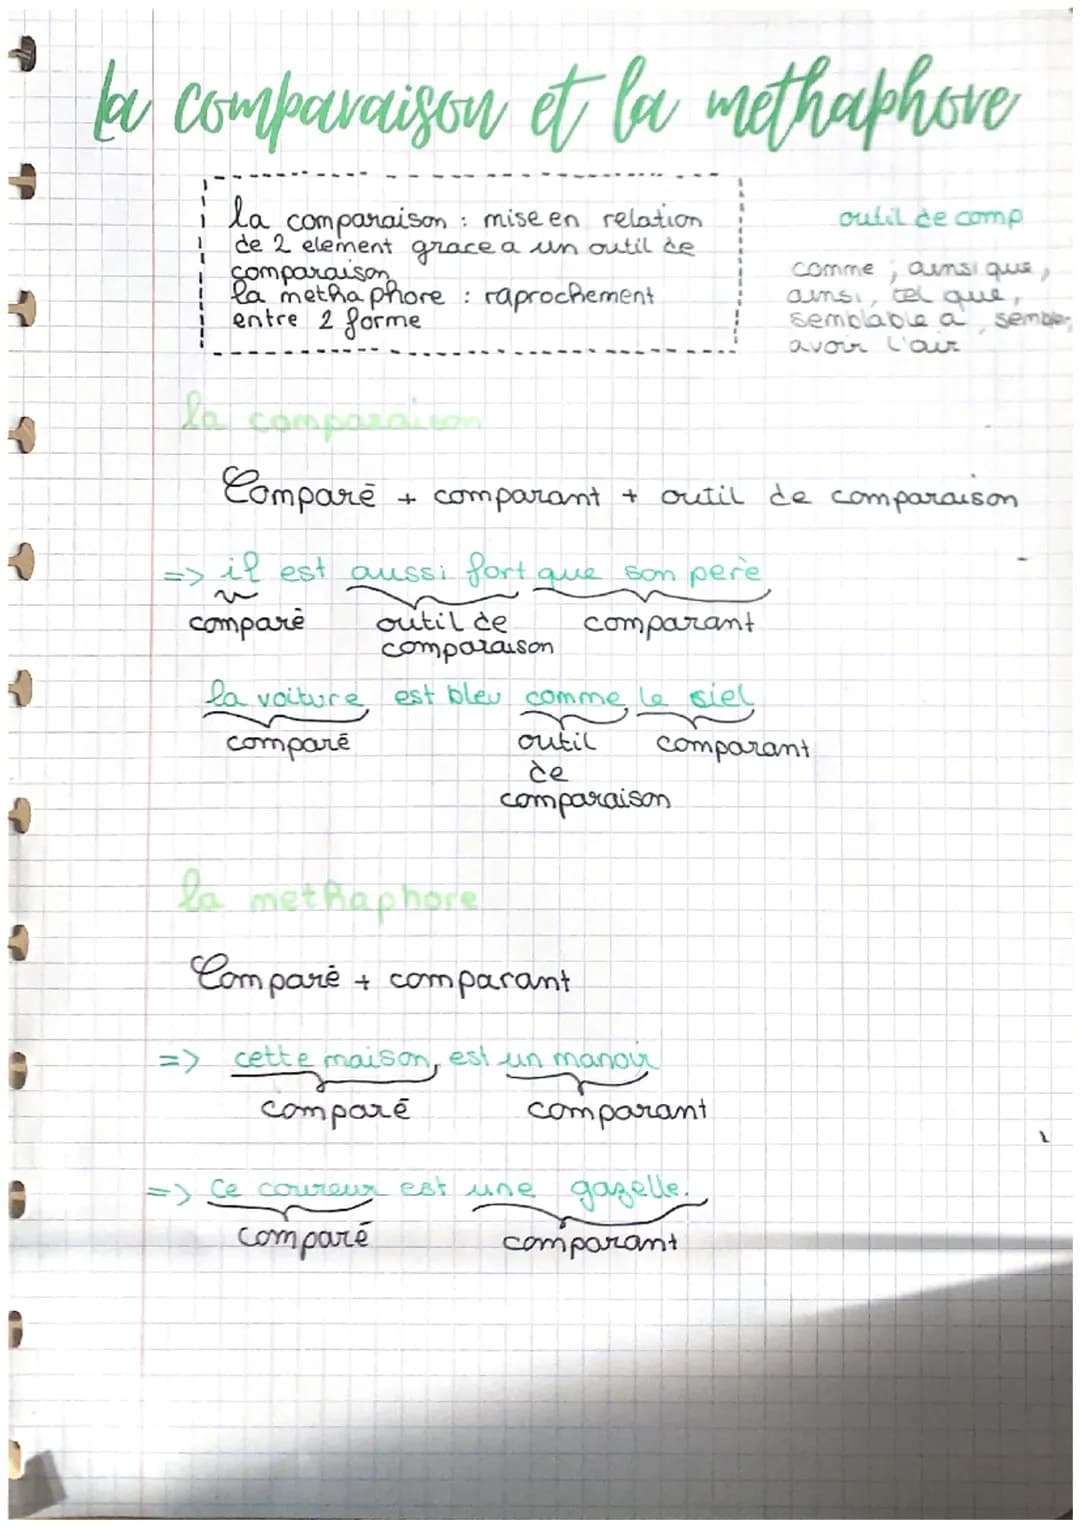 la comparaison et la methaphore
la comparaison : mise en relation
de 2 element grace a un outil de
comparaison
la methaphore : raprochement
entre 2 forme
outil de comp
comme, ainsi que,
ainsi, tel que,
semblable a, sembler,
avoir l'air
la comparaison
Comparé + comparant + outil de comparaison
=> il est aussi fort que son père
comparé outil de comparant
comparaison
la voiture est bleu comme le siel
comparé outil comparant
de
comparaison
la methaphore
Comparé + comparant
=> cette maison, est un manoir
comparé comparant
=> ce coureur est une gazelle.
comparé comparant